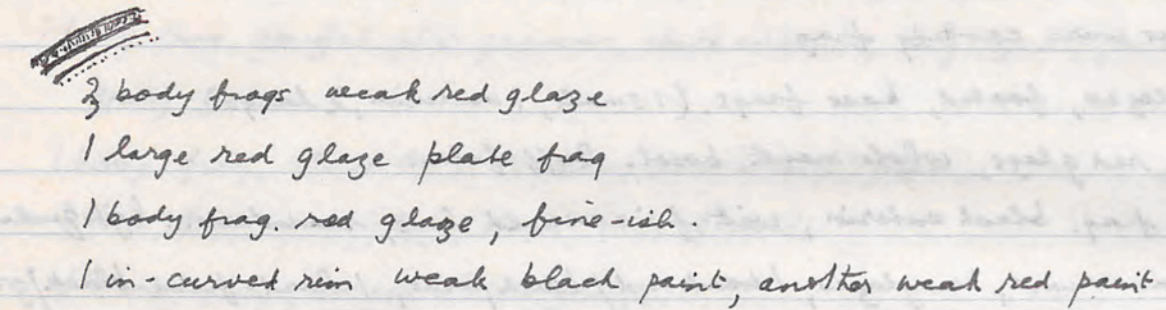 3 body frags weak red glaze
1 large red glaze plate frag
1 body frag. red glaze, fine-ish.
1 in-curved rim weak black paint, another weak red paint